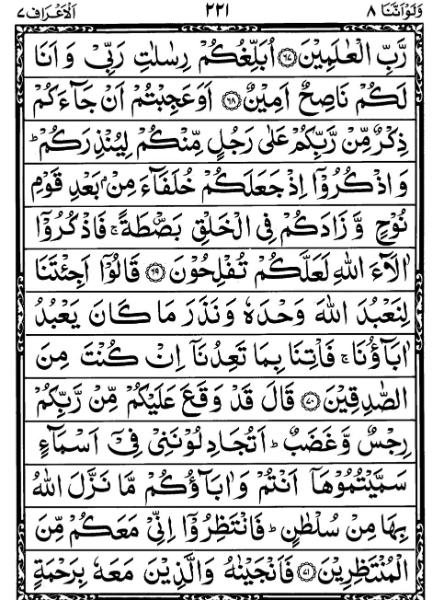 وَلَوْاَنَّنَا ٨ ٢٢١ اَلْاَعْرَاف ٧
رَّبِّ الْعٰلَمِيْنَ ۝٦٧ اُبَلِّغُكُمْ رِسٰلٰتِ رَبِّيْ وَ اَنَا
لَكُمْ نَاصِحٌ اَمِيْنٌ ۝٦٨ اَوَعَجِبْتُمْ اَنْ جَآءَكُمْ
ذِكْرٌ مِّنْ رَّبِّكُمْ عَلٰى رَجُلٍ مِّنْكُمْ لِيُنْذِرَكُمْ ؕ
وَ اذْكُرُوْۤا اِذْ جَعَلَكُمْ خُلَفَآءَ مِنْۢ بَعْدِ قَوْمِ
نُوْحٍ وَّ زَادَكُمْ فِي الْخَلْقِ بَصْۜطَةً ۚ فَاذْكُرُوْۤا
اٰلَآءَ اللّٰهِ لَعَلَّكُمْ تُفْلِحُوْنَ ۝٦٩ قَالُوْۤا اَجِئْتَنَا
لِنَعْبُدَ اللّٰهَ وَحْدَهٗ وَ نَذَرَ مَا كَانَ يَعْبُدُ
اٰبَآؤُنَا ۚ فَاْتِنَا بِمَا تَعِدُنَاۤ اِنْ كُنْتَ مِنَ
الصّٰدِقِيْنَ ۝٧٠ قَالَ قَدْ وَقَعَ عَلَيْكُمْ مِّنْ رَّبِّكُمْ
رِجْسٌ وَّ غَضَبٌ ؕ اَتُجَادِلُوْنَنِيْ فِيْۤ اَسْمَآءٍ
سَمَّيْتُمُوْهَاۤ اَنْتُمْ وَ اٰبَآؤُكُمْ مَّا نَزَّلَ اللّٰهُ
بِهَا مِنْ سُلْطٰنٍ ؕ فَانْتَظِرُوْۤا اِنِّيْ مَعَكُمْ مِّنَ
الْمُنْتَظِرِيْنَ ۝٧١ فَاَنْجَيْنٰهُ وَ الَّذِيْنَ مَعَهٗ بِرَحْمَةٍ